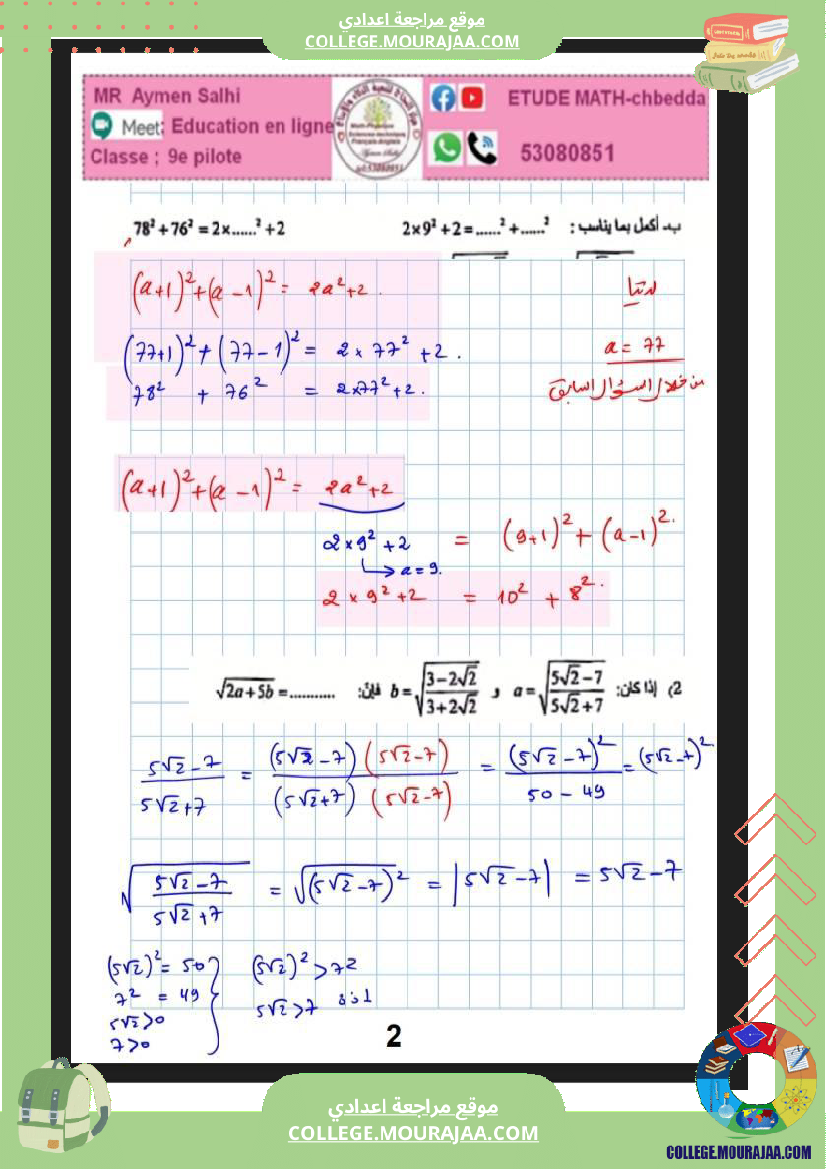 موقع مراجعة اعدادي
COLLEGE.MOURAJAA.COM
MR Aymen Salhi
Meet: Education en ligne
Classe ; 9e pilote
ETUDE MATH-chbedda
53080851
ب- أكمل بما يناسب : 2×9²+2=......²+......² 78²+76²=2×......²+2
(a+1)²+(a-1)² = 2a²+2. لدينا
(77+1)²+(77-1)² = 2×77²+2. a=77
78² + 76² = 2×77²+2. من خلال السؤال السابق
(a+1)²+(a-1)² = 2a²+2
2×9²+2 = (9+1)²+(a-1)².
a=9.
2×9²+2 = 10²+8².
2) إذا كان: a=√((5√2-7)/(5√2+7)) و b=√((3-2√2)/(3+2√2)) فإن: √(2a+5b)=...........
(5√2-7)/(5√2+7) = ((5√2-7)(5√2-7))/((5√2+7)(5√2-7)) = (5√2-7)²/(50-49) = (5√2-7)²
√((5√2-7)/(5√2+7)) = √((5√2-7)²) = |5√2-7| = 5√2-7
(5√2)²=50 (5√2)²>7²
7² = 49 إذا 5√2>7
5√2>0
7>0
2
موقع مراجعة اعدادي
COLLEGE.MOURAJAA.COM
COLLEGE.MOURAJAA.COM